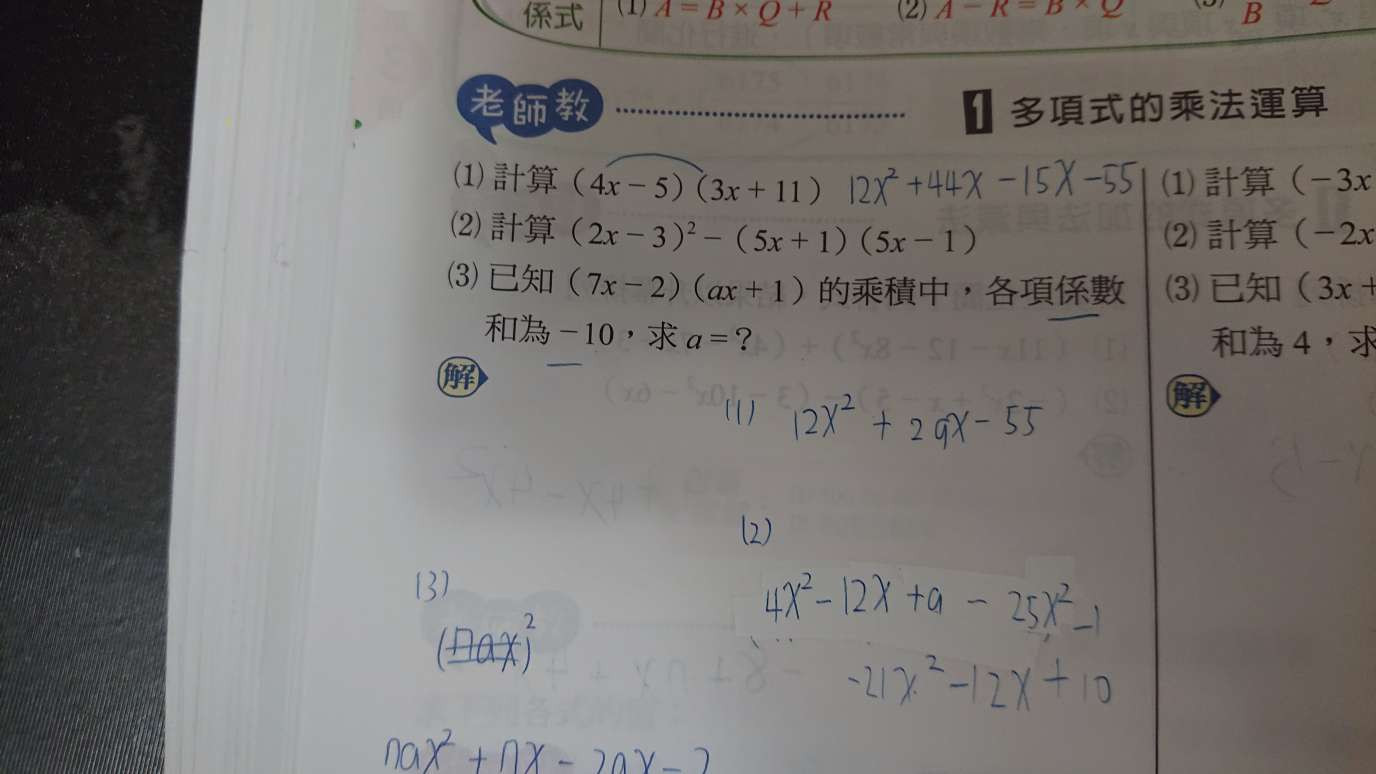 係式 (1) A = B × Q + R (2) A − R = B × Q
老師教 1 多項式的乘法運算
(1) 計算 (4x − 5)(3x + 11) 12x² + 44x − 15x − 55
(2) 計算 (2x − 3)² − (5x + 1)(5x − 1)
(3) 已知 (7x − 2)(ax + 1) 的乘積中，各項係數
和為 −10，求 a = ?
解
(1) 12x² + 29x − 55
(2)
4x² − 12x + 9 − 25x² − 1
−21x² − 12x + 10
(3)
(7ax)²
7ax² + 7x − 2ax − 2
(1) 計算 (−3x
(2) 計算 (−2x
(3) 已知 (3x +
和為 4，求
解